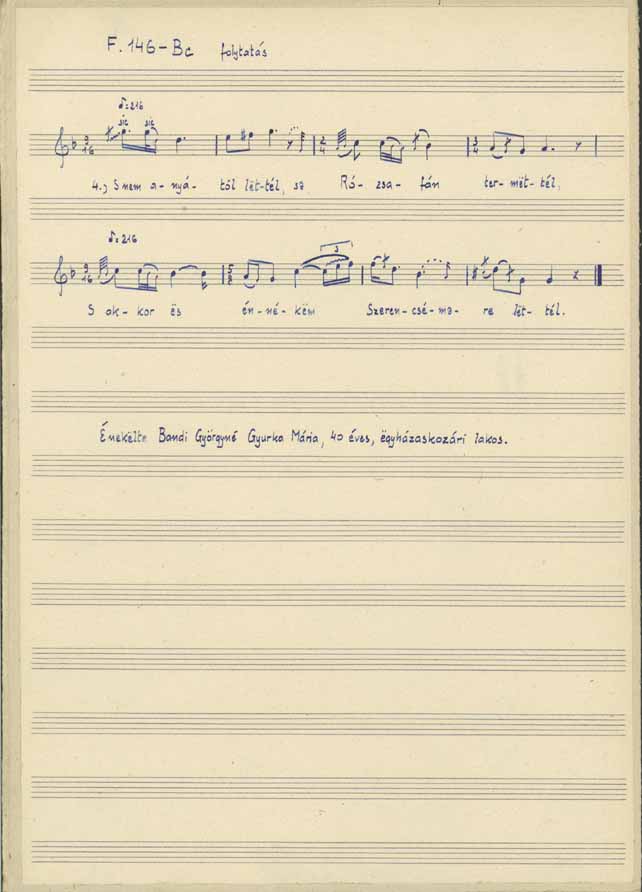 F. 146-Bc folytatás
♪=216
sic sic
4.) S nem a-nyá- tól lët-tél, sz Ró- zsa- fán ter-mët-tél,
♪=216
3
S ak-kor ës én-né-këm Szeren-csé-mə- re lët-tél.
Énekelte Bandi Györgyné Gyurka Mária, 40 éves, ëgyházaskozári lakos.